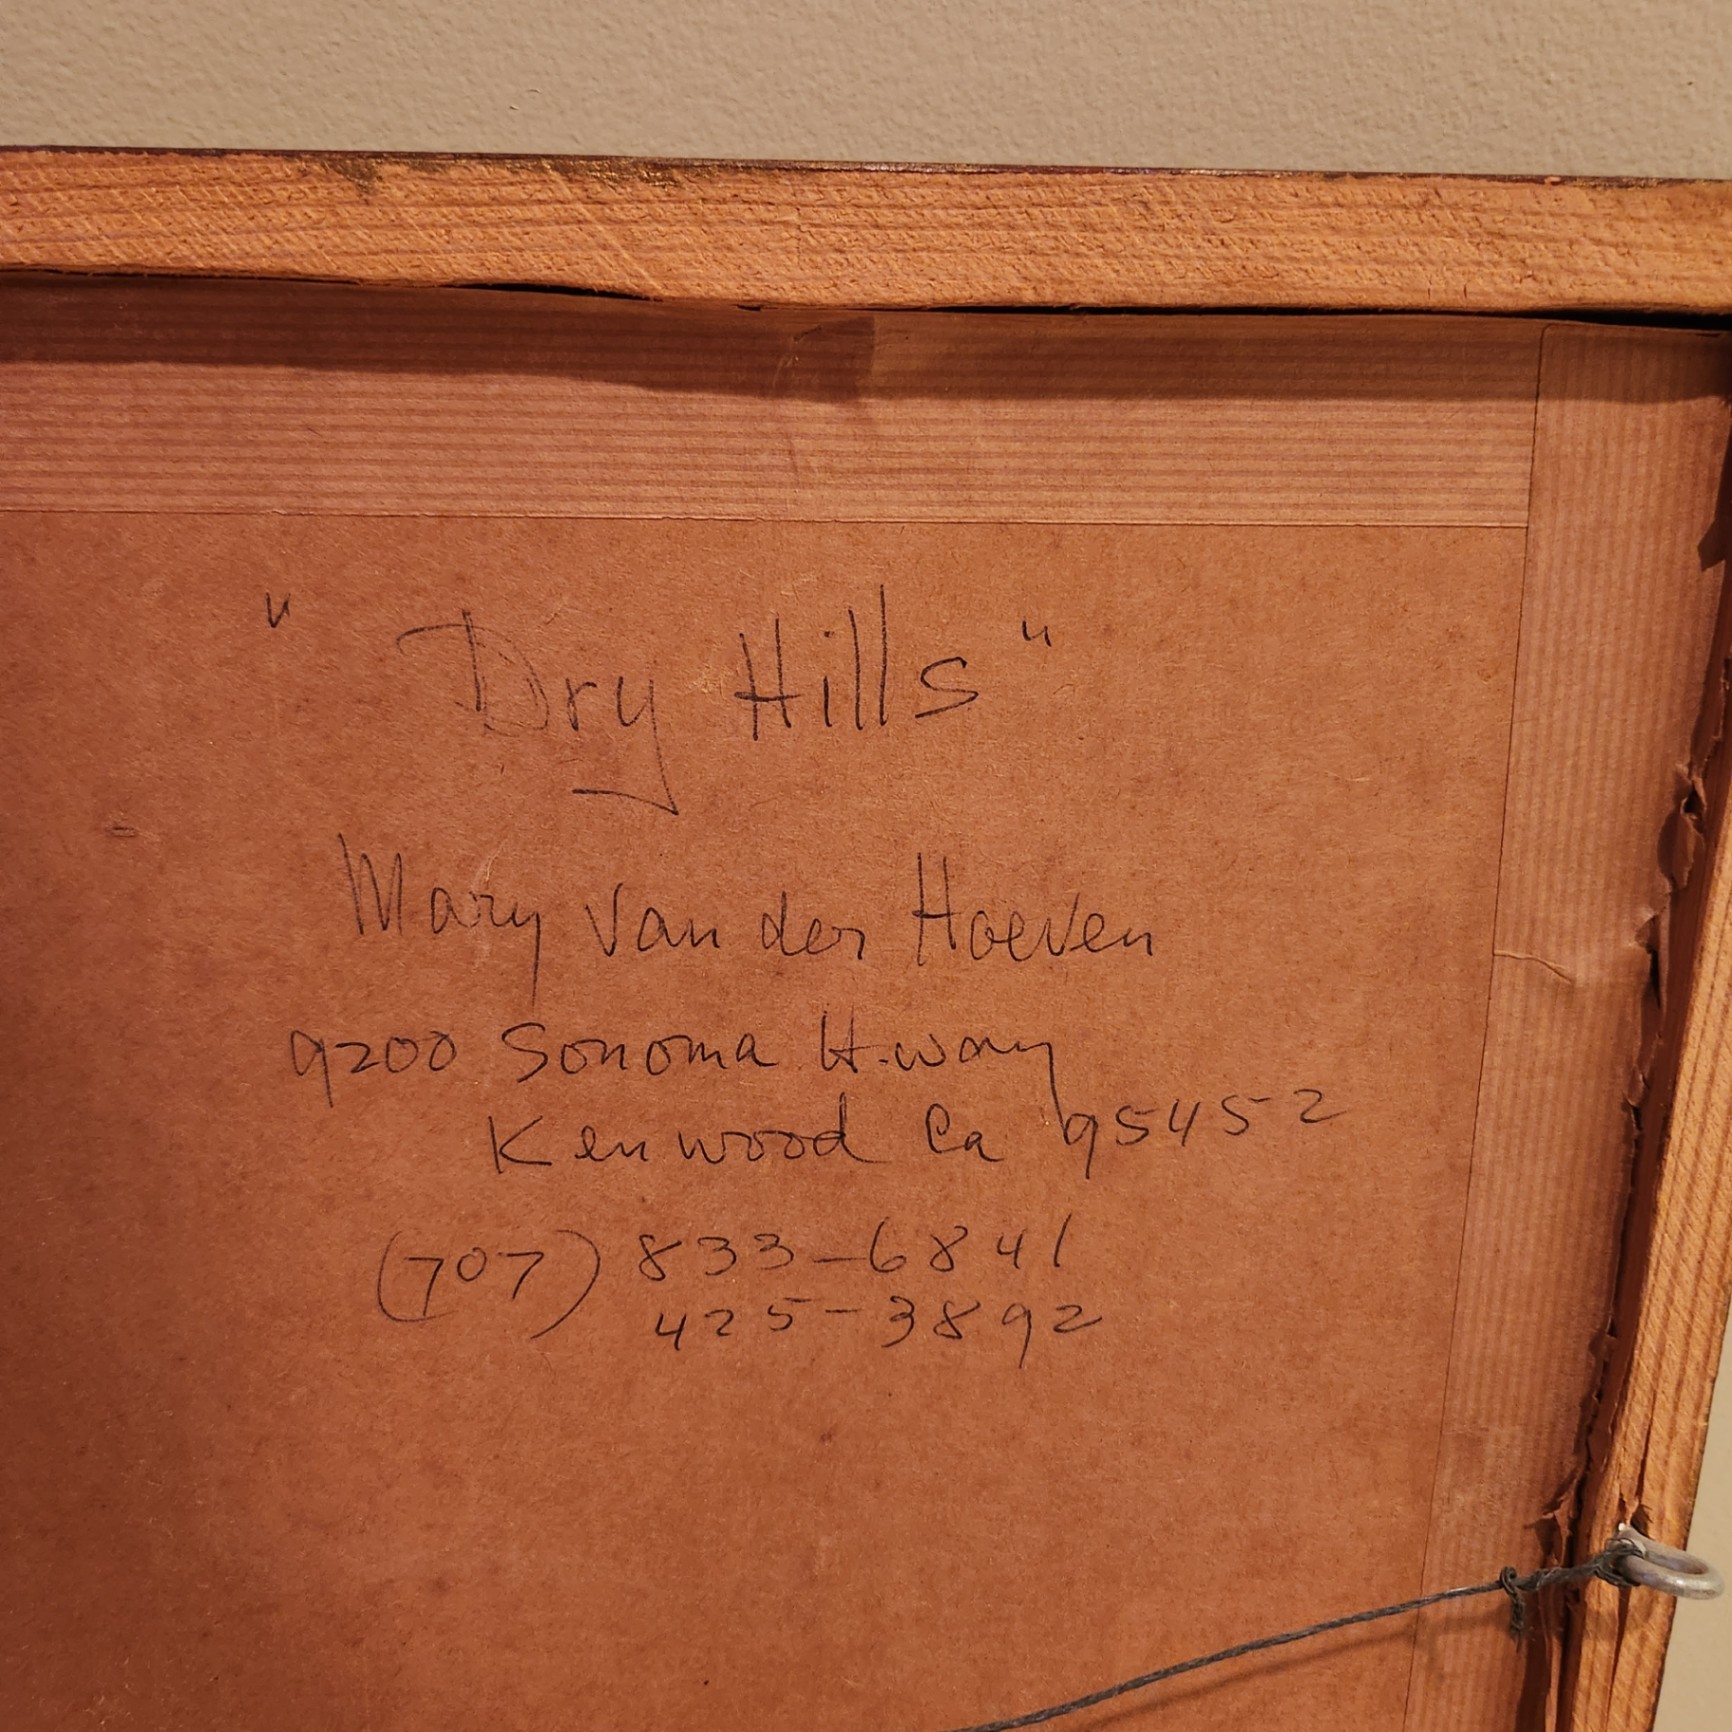 "Dry Hills"
Mary van der Hoeven
9200 Sonoma H.way
Kenwood Ca 95452
(707) 833-6841
425-3892